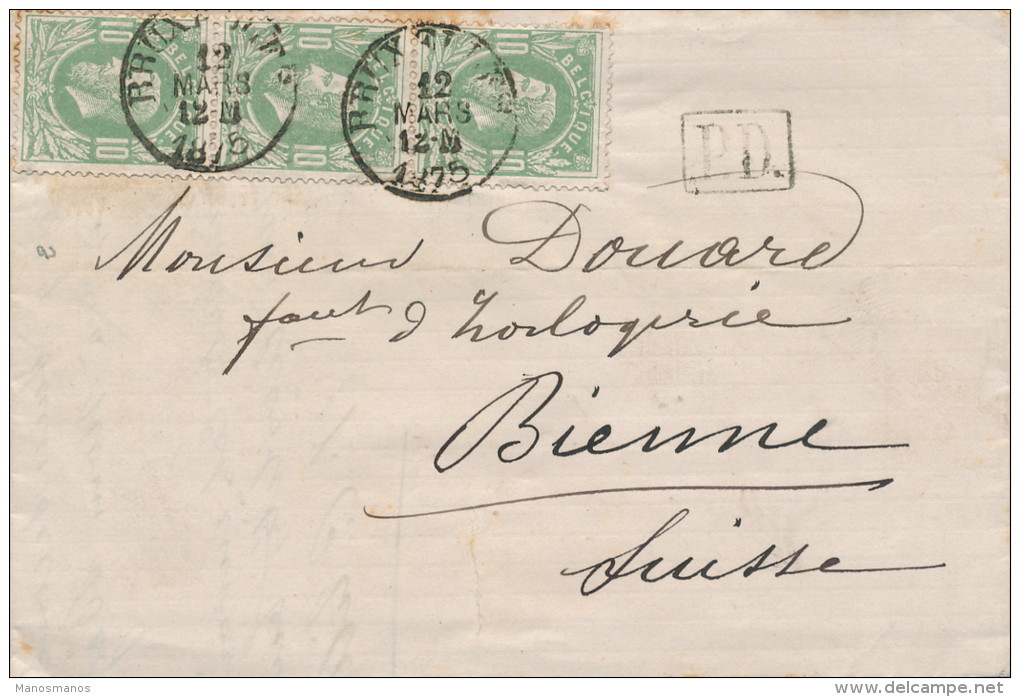 10 10 10
BELGIQUE BELGIQUE BELGIQUE
10 10 10
BRUXELLES
12
MARS
12-M
1875
BRUXELLES
12
MARS
12-M
1875
P.D.
2
Monsieur Douard
fant d'horlogerie
Bienne
Suisse
Manosmanos
delcampe.net